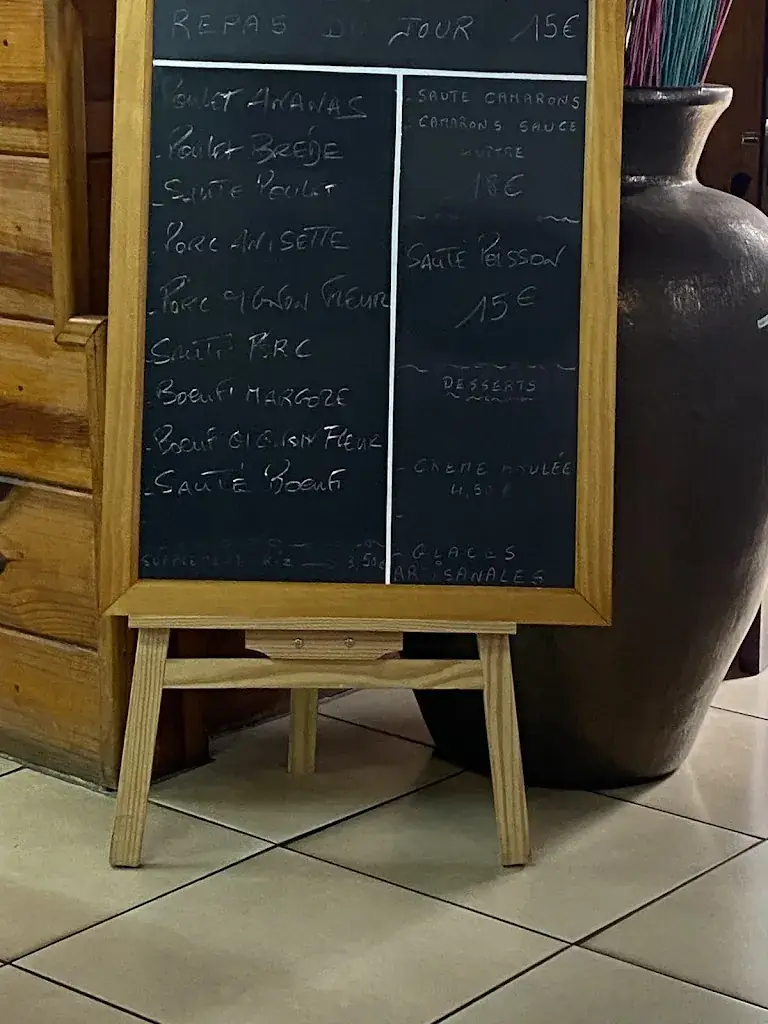 REPAS DU JOUR 15€
Poulet ANANAS
- Poulet BRÈDE
- Sauté Poulet
- Porc ANISETTE
- Porc OIGNON FLEUR
- Sauté Porc
- Boeuf MARGOZE
- Boeuf OIGNON FLEUR
- SAUTÉ Boeuf
-
SUPPLEMENT RIZ — 3,50€
- SAUTE CAMARONS
- CAMARONS SAUCE
HUITRE
18€
SAUTÉ POISSON
15€
DESSERTS
- CREME BRULÉE
4,50€
-
- GLACES
ARTISANALES